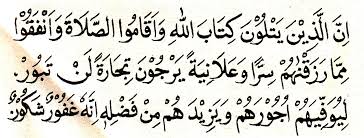 اِنَّ الَّذِيْنَ يَتْلُوْنَ كِتَابَ اللهِ وَاَقَامُوا الصَّلَاةَ وَاَنْفَقُوْا
مِمَّا رَزَقْنٰهُمْ سِرًّا وَعَلَانِيَةً يَرْجُوْنَ تِجَارَةً لَنْ تَبُوْرَ.
لِيُوَفِّيَهُمْ اُجُوْرَهُمْ وَيَزِيْدَ هُمْ مِنْ فَضْلِهِ اِنَّهُ غَفُوْرٌ شَكُوْرٌ